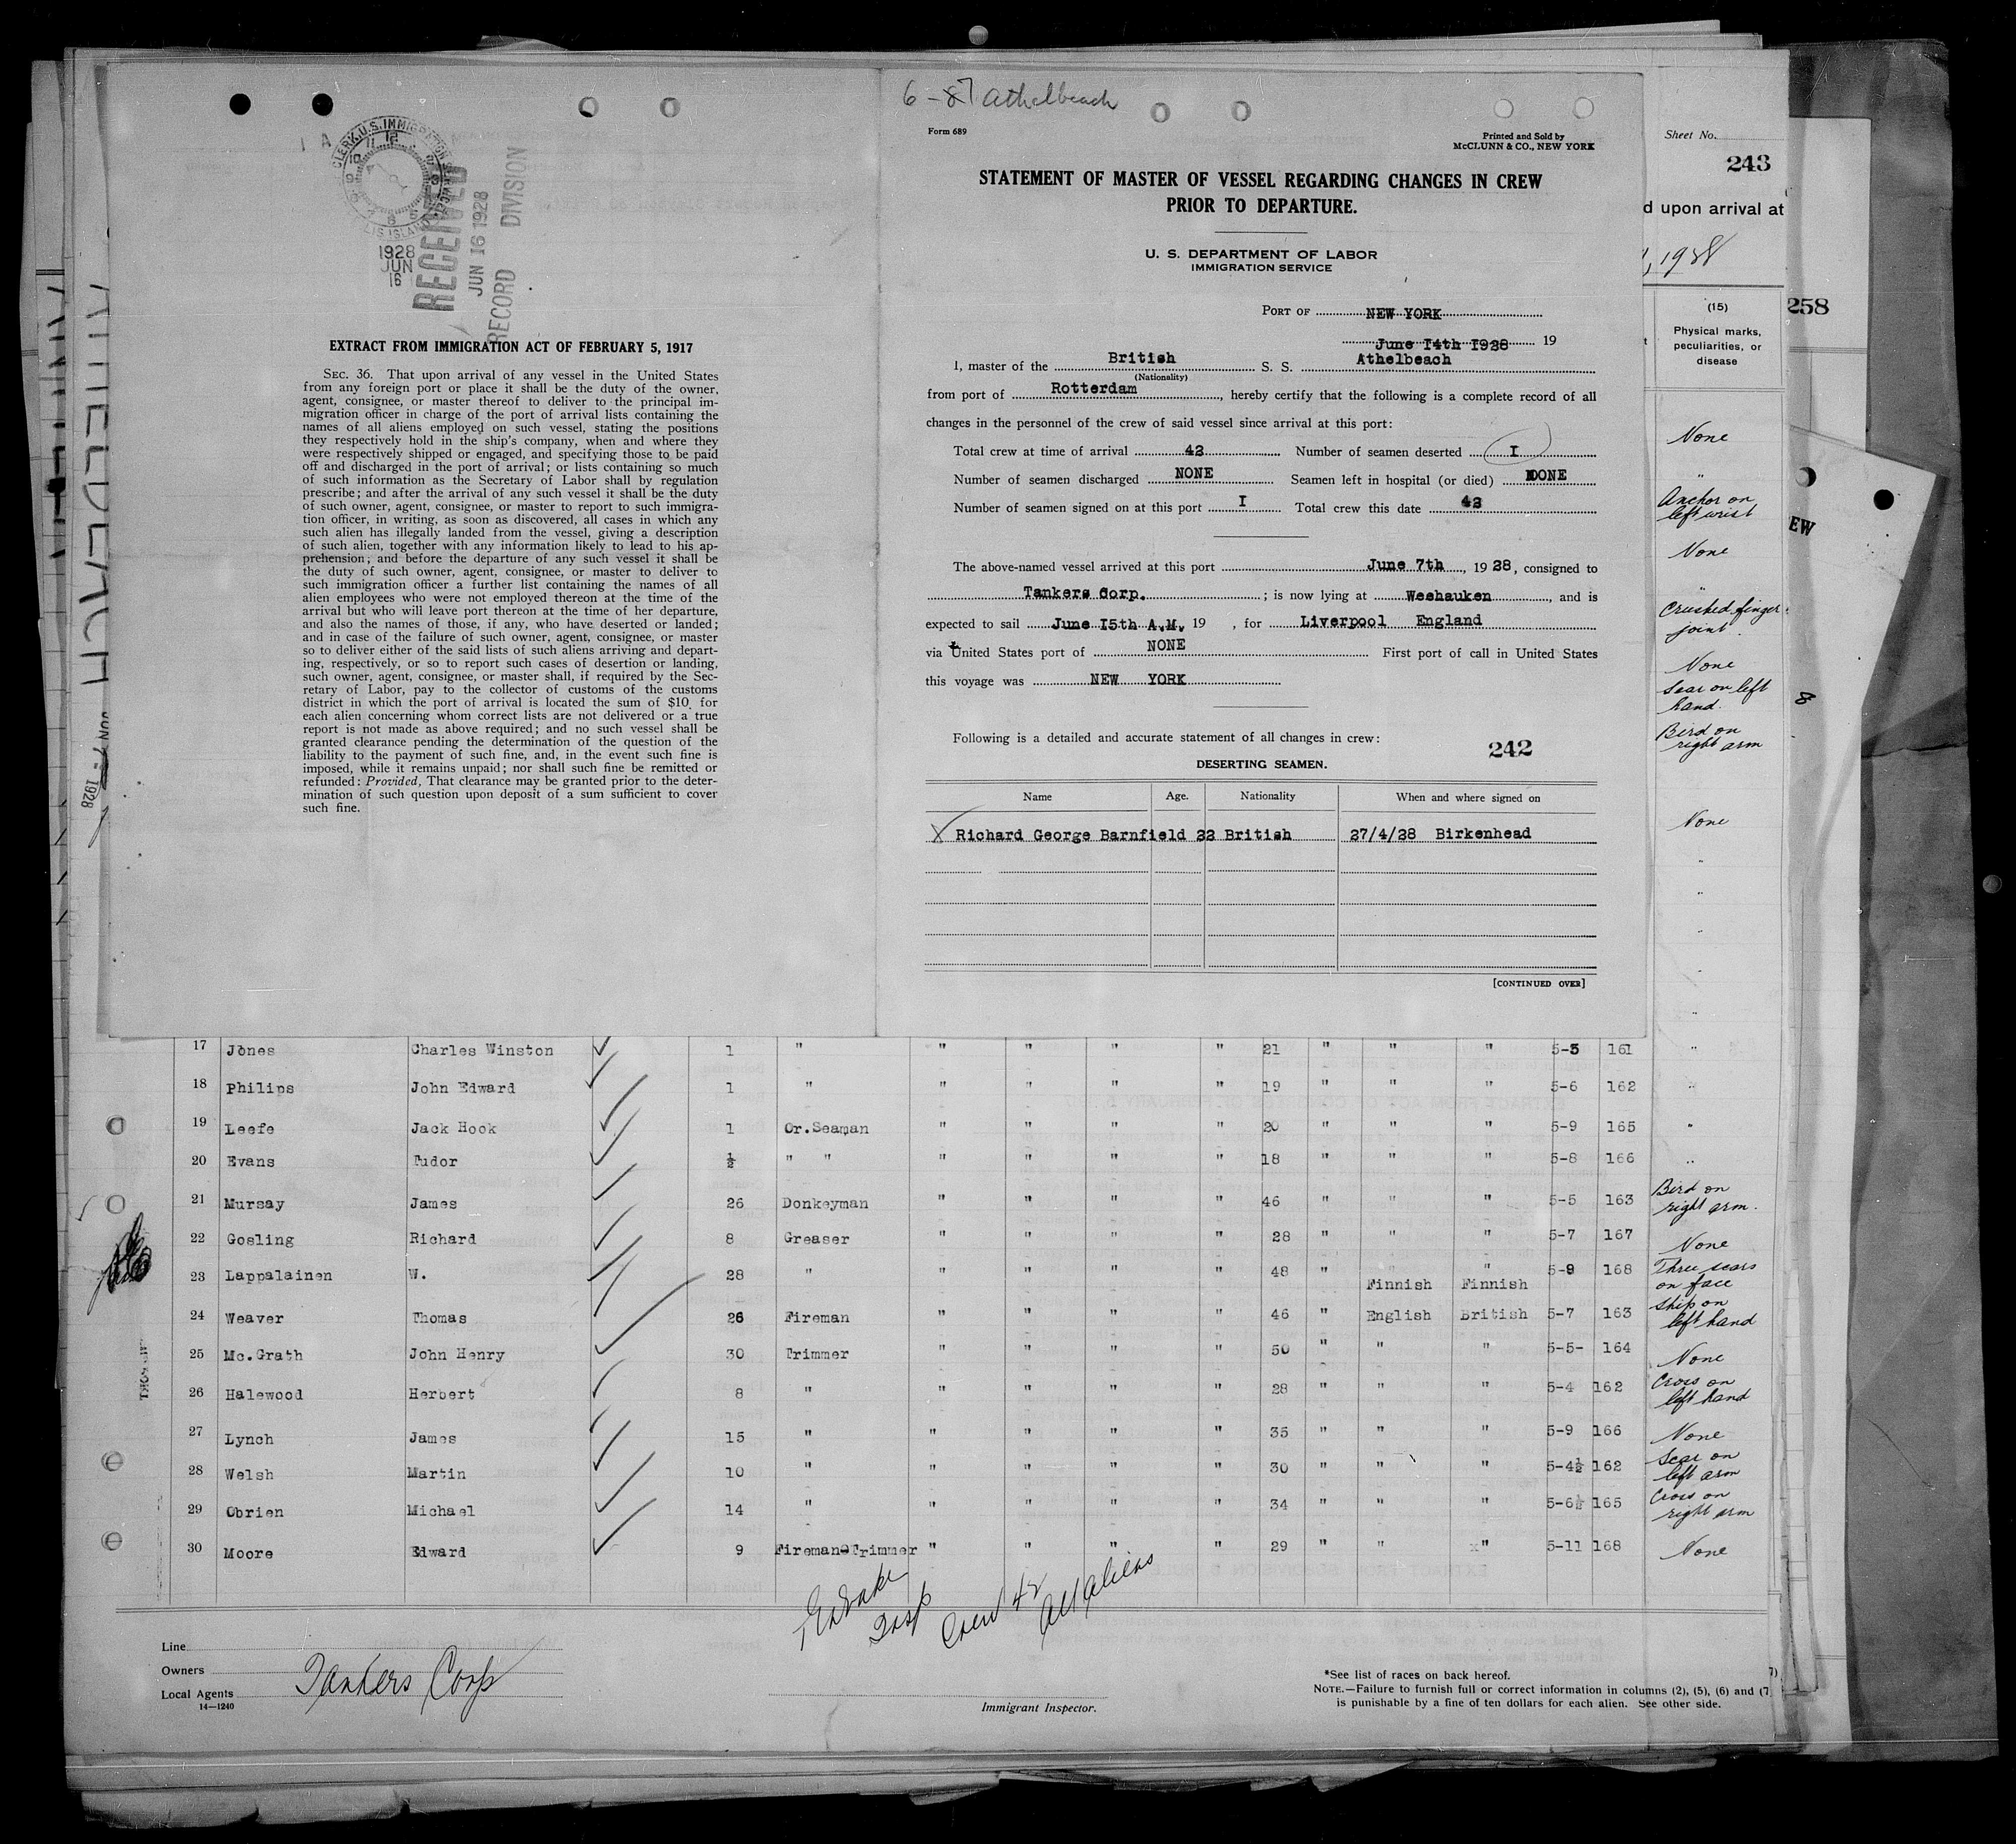 6-7 Athelbeach
Form 689
Printed and Sold by
McCLUNN & CO., NEW YORK
STATEMENT OF MASTER OF VESSEL REGARDING CHANGES IN CREW
PRIOR TO DEPARTURE.
U. S. DEPARTMENT OF LABOR
IMMIGRATION SERVICE
PORT OF NEW YORK
June 14th 1928 19
I, master of the British S. S. Athelbeach
(Nationality)
from port of Rotterdam, hereby certify that the following is a complete record of all
changes in the personnel of the crew of said vessel since arrival at this port:
Total crew at time of arrival 42 Number of seamen deserted I
Number of seamen discharged NONE Seamen left in hospital (or died) NONE
Number of seamen signed on at this port I Total crew this date 42
The above-named vessel arrived at this port June 7th, 1928, consigned to
Tankers Corp.; is now lying at Weehauken, and is
expected to sail June I5th A.M. 19 , for Liverpool England
via United States port of NONE First port of call in United States
this voyage was NEW YORK
Following is a detailed and accurate statement of all changes in crew:
242
DESERTING SEAMEN.
Name Age. Nationality When and where signed on
X Richard George Barnfield 22 British 27/4/28 Birkenhead
[CONTINUED OVER]
CLERK, U.S. IMMIGRATION
1928
JUN
16
RECEIVED
JUN 16 1928
RECORD DIVISION
EXTRACT FROM IMMIGRATION ACT OF FEBRUARY 5, 1917
SEC. 36. That upon arrival of any vessel in the United States
from any foreign port or place it shall be the duty of the owner,
agent, consignee, or master thereof to deliver to the principal im-
migration officer in charge of the port of arrival lists containing the
names of all aliens employed on such vessel, stating the positions
they respectively hold in the ship's company, when and where they
were respectively shipped or engaged, and specifying those to be paid
off and discharged in the port of arrival; or lists containing so much
of such information as the Secretary of Labor shall by regulation
prescribe; and after the arrival of any such vessel it shall be the duty
of such owner, agent, consignee, or master to report to such immigra-
tion officer, in writing, as soon as discovered, all cases in which any
such alien has illegally landed from the vessel, giving a description
of such alien, together with any information likely to lead to his ap-
prehension; and before the departure of any such vessel it shall be
the duty of such owner, agent, consignee, or master to deliver to
such immigration officer a further list containing the names of all
alien employees who were not employed thereon at the time of the
arrival but who will leave port thereon at the time of her departure,
and also the names of those, if any, who have deserted or landed;
and in case of the failure of such owner, agent, consignee, or master
so to deliver either of the said lists of such aliens arriving and depart-
ing, respectively, or so to report such cases of desertion or landing,
such owner, agent, consignee, or master shall, if required by the Sec-
retary of Labor, pay to the collector of customs of the customs
district in which the port of arrival is located the sum of $10 for
each alien concerning whom correct lists are not delivered or a true
report is not made as above required; and no such vessel shall be
granted clearance pending the determination of the question of the
liability to the payment of such fine, and, in the event such fine is
imposed, while it remains unpaid; nor shall such fine be remitted or
refunded: Provided, That clearance may be granted prior to the deter-
mination of such question upon deposit of a sum sufficient to cover
such fine.
Sheet No.
243
d upon arrival at
, 1928
258
EW
8
(15)
Physical marks,
peculiarities, or
disease
None
"
Anchor on
left wrist
None
"
Crushed finger
joint.
None
Scar on left
hand.
Bird on
right arm
None
"
"
"
"
ATHELBEACH
JUN 7 1928
17 Jones Charles Winston 1 " " " " " 21 " " " 5-5 161 "
18 Philips John Edward 1 " " " " " 19 " " " 5-6 162 "
19 Leefe Jack Hook 1 Or.Seaman " " " " 20 " " " 5-9 165 "
20 Evans Tudor ½ " " " " " " 18 " " " 5-8 166 "
21 Mursay James 26 Donkeyman " " " " 46 " " " 5-5 163 Bird on right arm.
22 Gosling Richard 8 Greaser " " " " 28 " " " 5-7 167 None
23 Lappalainen W. 28 " " " " " 48 " Finnish Finnish 5-9 168 Three scars on face
24 Weaver Thomas 26 Fireman " " " " 46 " English British 5-7 163 Ship on left hand
25 Mc.Grath John Henry 30 Trimmer " " " " 50 " " " 5-5- 164 None
26 Halewood Herbert 8 " " " " " 28 " " " 5-4 162 Cross on left hand
27 Lynch James 15 " " " " " 35 " " " 5-9 166 None
28 Welsh Martin 10 " " " " " 30 " " " 5-4½ 162 Scar on left arm
29 Obrien Michael 14 " " " " " 34 " " " 5-6½ 165 Cross on right arm
30 Moore Edward 9 Fireman-Trimmer " " " " 29 " " x" 5-11 168 None
Insp
Crew 42
All Aliens
Line
Owners
Local Agents
Tankers Corp
14—1240
Immigrant Inspector.
*See list of races on back hereof.
NOTE.—Failure to furnish full or correct information in columns (2), (5), (6) and (7
is punishable by a fine of ten dollars for each alien. See other side.